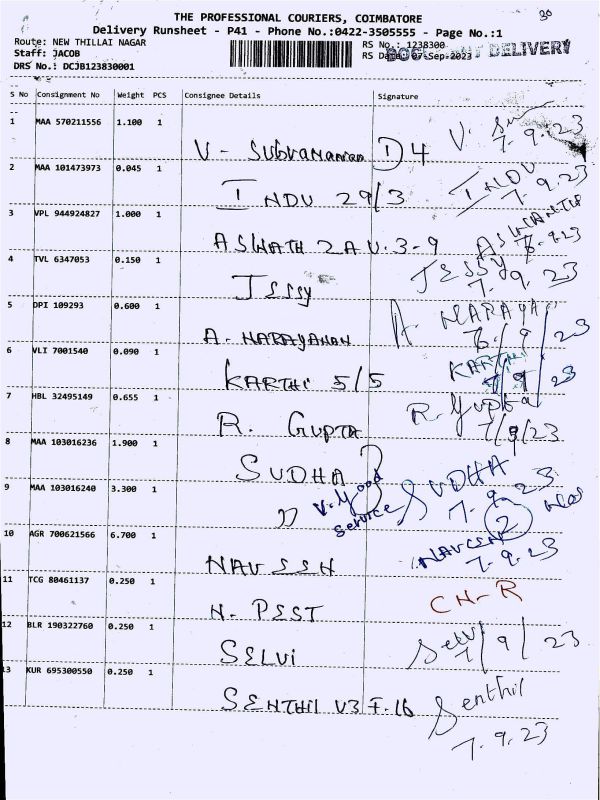 30
THE PROFESSIONAL COURIERS, COIMBATORE
Delivery Runsheet - P41 - Phone No.:0422-3505555 - Page No.:1
Route: NEW THILLAI NAGAR
RS No.: 1238300
Staff: JACOB
DELIVERY
RS Date: 07-Sep-2023
DRS No.: DCJB123830001
S No Consignment No Weight PCS Consignee Details Signature
1 MAA 570211556 1.100 1
V - Subramanian D 4 V. Su 7.9.23
2 MAA 101473973 0.045 1
INDU 29/3 INDU 7.9.23
3 VPL 944924827 1.000 1
ASWATH 2A V.3-9 .9.23
4 TVL 6347053 0.150 1
Jessy JESSY 7.9.23
5 DPI 109293 0.600 1
A. NARAYANAN A. NARAYA /9/23
6 VLI 7001540 0.090 1
KARTHi 5/5 KARTHi 7/9/23
7 HBL 32495149 0.655 1
R. GUPTA R. Gupta 7/9/23
8 MAA 103016236 1.900 1
SUDHA SUDHA 7.9.23
9 MAA 103016240 3.300 1
V.Good Service 2 Nos
10 AGR 700621566 6.700 1
NAVEEN NAVEEN 7.9.23
11 TCG 80461137 0.250 1
N- PEST CN-R
12 BLR 190322760 0.250 1
SELVi Selvi 7/9/23
13 KUR 695300550 0.250 1
SENTHiL V3 F.16 Senthil 7.9.23